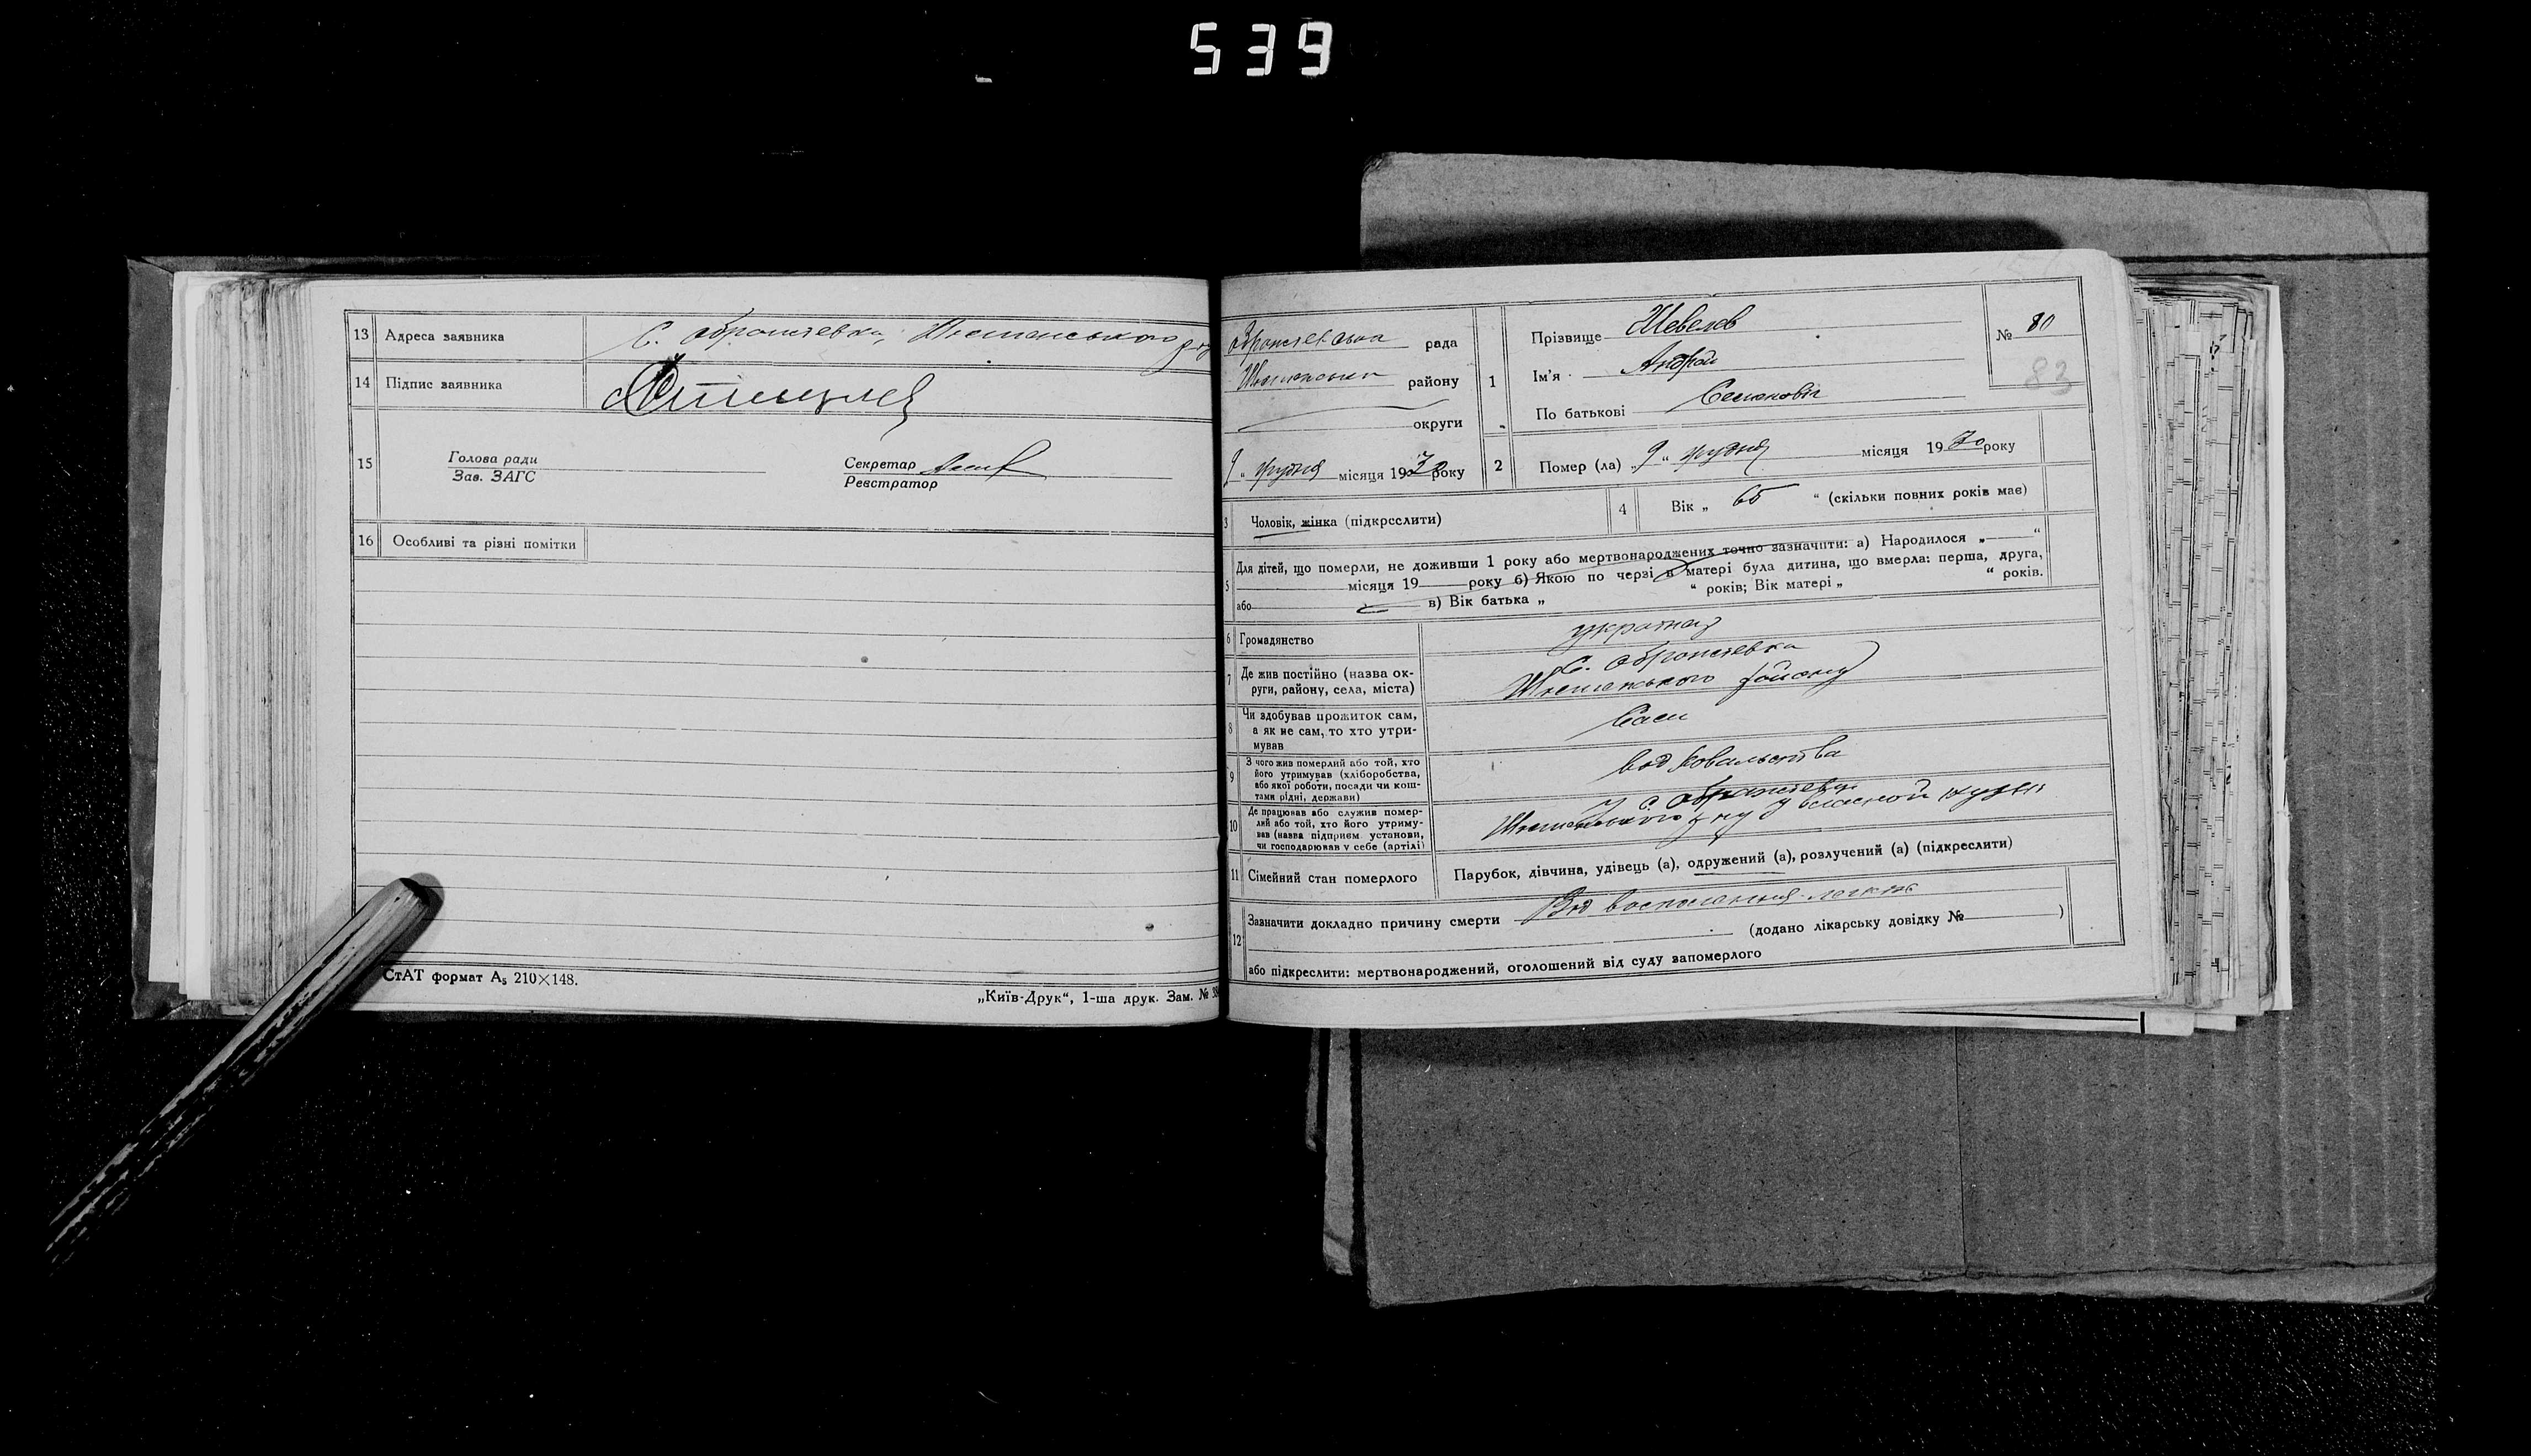 539
13 Адреса заявника С.
14 Підпис заявника
15 Голова ради
Зав. ЗАГС
Секретар
Реєстратор
16 Особливі та різні помітки
СтАТ формат А₅ 210×148.
„Київ-Друк“, 1-ша друк. Зам. №
рада
району
округи
9 „ грудня місяця 1930 року
1 Прізвище Шевелев
Ім'я Андрей
По батькові Семенович
№ 80
83
2 Помер (ла) 9 „ грудня місяця 1930 року
3 Чоловік, жінка (підкреслити)
4 Вік „ 65 “ (скільки повних років має)
5 Для дітей, що померли, не доживши 1 року або мертвонароджених точно зазначити: а) Народилося „ “
місяця 19 року б) Якою по черзі в матері була дитина, що вмерла: перша, друга,
або в) Вік батька „ “ років; Вік матері „ “ років.
6 Громадянство
7 Де жив постійно (назва ок-
руги, району, села, міста)
С.
району
8 Чи здобував прожиток сам,
а як не сам, то хто утри-
мував
Сам
9 З чого жив померлий або той, хто
його утримував (хліборобства,
або якої роботи, посади чи кош-
тами рідні, держави)
вод ковальства
10 Де працював або служив помер-
лий або той, хто його утриму-
вав (назва підприєм. установи,
чи господарював у себе (артілі)
У с.
р-ну у власной кузьні
11 Сімейний стан померлого Парубок, дівчина, удівець (а), одружений (а), розлучений (а) (підкреслити)
12 Зазначити докладно причину смерти Вод воспаления легких
(додано лікарську довідку № )
або підкреслити: мертвонароджений, оголошений від суду запомерлого